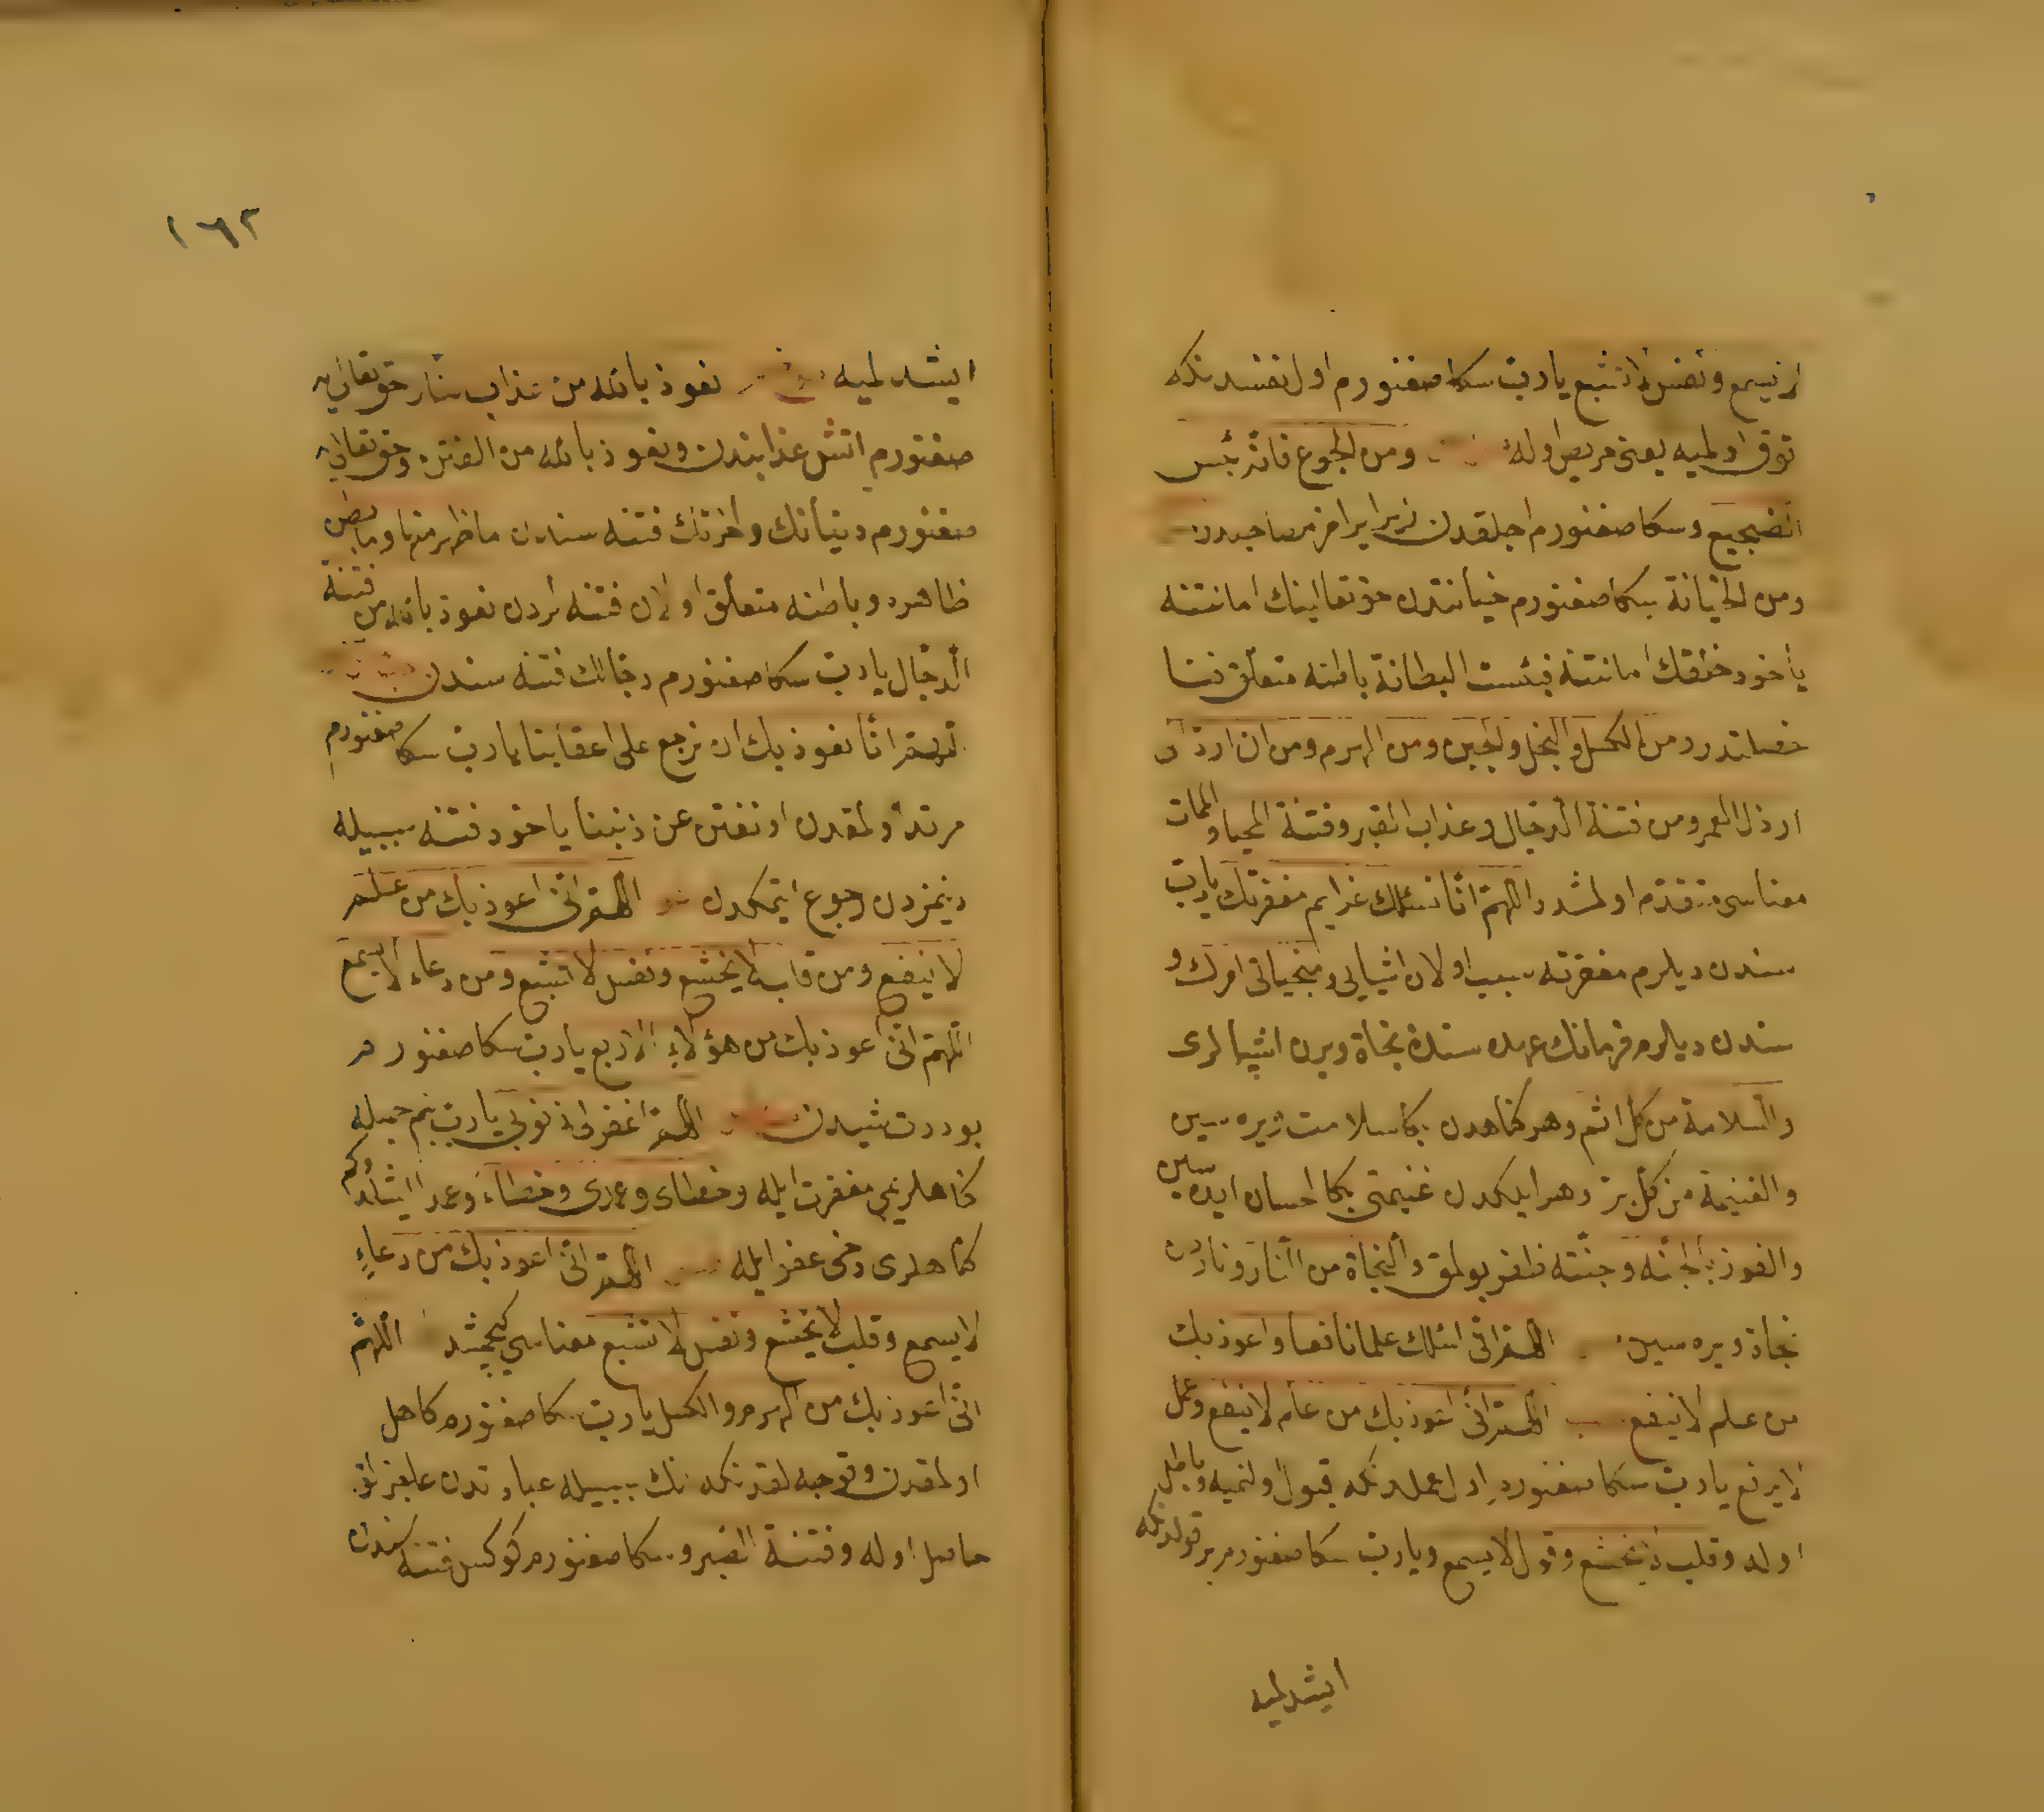 لا يسمع ونفس لا تشبع يا رب سكا صغنورم اول نفسدنكه
توق اولميه يعنى حريص اوله ومن الجوع فانه بئس
الضجيع وسكا صغنورم اجلقدن زيرا يرامز مصاحبدر
ومن الخيانة سكا صغنورم خيانتدن حق تعالينك امانتنه
ياخود خلقك امانتنه فبئست البطانة باطنه متعلق فنا
خصلتدر ومن الكسل والبخل والجبن ومن الهرم ومن ان ارد الى
ارذل العمر ومن فتنة الدجال وعذاب القبر وفتنة المحيا والممات
معناسى متقدم اولمشدر اللهم انا نسئلك عزايم مغفرتك يا رب
سندن ديلرم مغفرته سبب اولان اشيايى ومنجياتى امرك و
سندن ديلرم فرمانك عهده سندن نجاة ويرن اشيالرى
والسلامة من كل اثم وهر كناهدن بكا سلامت ويره سين
والغنيمة من كل بر وهر ايلكدن غنيمتى بكا احسان ايده سين
والفوز بالجنه وجنته ظفر بولمق والنجاة من النار وناردن
نجاة ويره سين اللهم انى اسئلك علما نافعا واعوذ بك
من علم لا ينفع اللهم انى اعوذ بك من علم لا ينفع وعمل
لا يرفع يا رب سكا صغنورم اول عملدنكه قبول اولنميه وباطل
اوله وقلب لا يخشع وقول لا يسمع ويا رب سكا صغنورم بر قولدنكه
ايشدلميه
١٦٢
ايشدلميه نعوذ بالله من عذاب النار حق تعالى يه
صغنورم اتش عذابندن ونعوذ بالله من الفتن وحق تعالى يه
صغنورم دنيانك واخرتك فتنه سندن ما ظهر منها وما بطن
ظاهره وباطنه متعلق اولان فتنه لردن نعوذ بالله من فتنة
الدجال يا رب سكا صغنورم دجالك فتنه سندن
اللهم انا نعوذ بك ان نرجع على اعقابنا يا رب سكا صغنورم
مرتد اولمقدن او نفتن عن ديننا ياخود فتنه سببيله
دينمزدن رجوع ايتمكدن اللهم انى اعوذ بك من علم
لا ينفع ومن قلب لا يخشع ونفس لا تشبع ومن دعاء لا يسمع
اللهم انى اعوذ بك من هؤلاء الاربع يا رب سكا صغنورم
بو درت شيدن اللهم اغفر لى ذنوبى يا رب بنم جميله
كناهلريمى مغفرت ايله وخطاى وعمدى وخطاء وعمدا ايشلدوكم
كناهلرى دخى عفو ايله اللهم انى اعوذ بك من دعاء
لا يسمع وقلب لا يخشع ونفس لا تشبع معناسى كچمشدر اللهم
انى اعوذ بك من الهرم والكسل يا رب سكا صغنورم كاهل
اولمقدن وقوجه لقدنكه انك سببيله عبادتدن عاجزلق
حاصل اوله وفتنة القبر وسكا صغنورم كوكس فتنه سندن